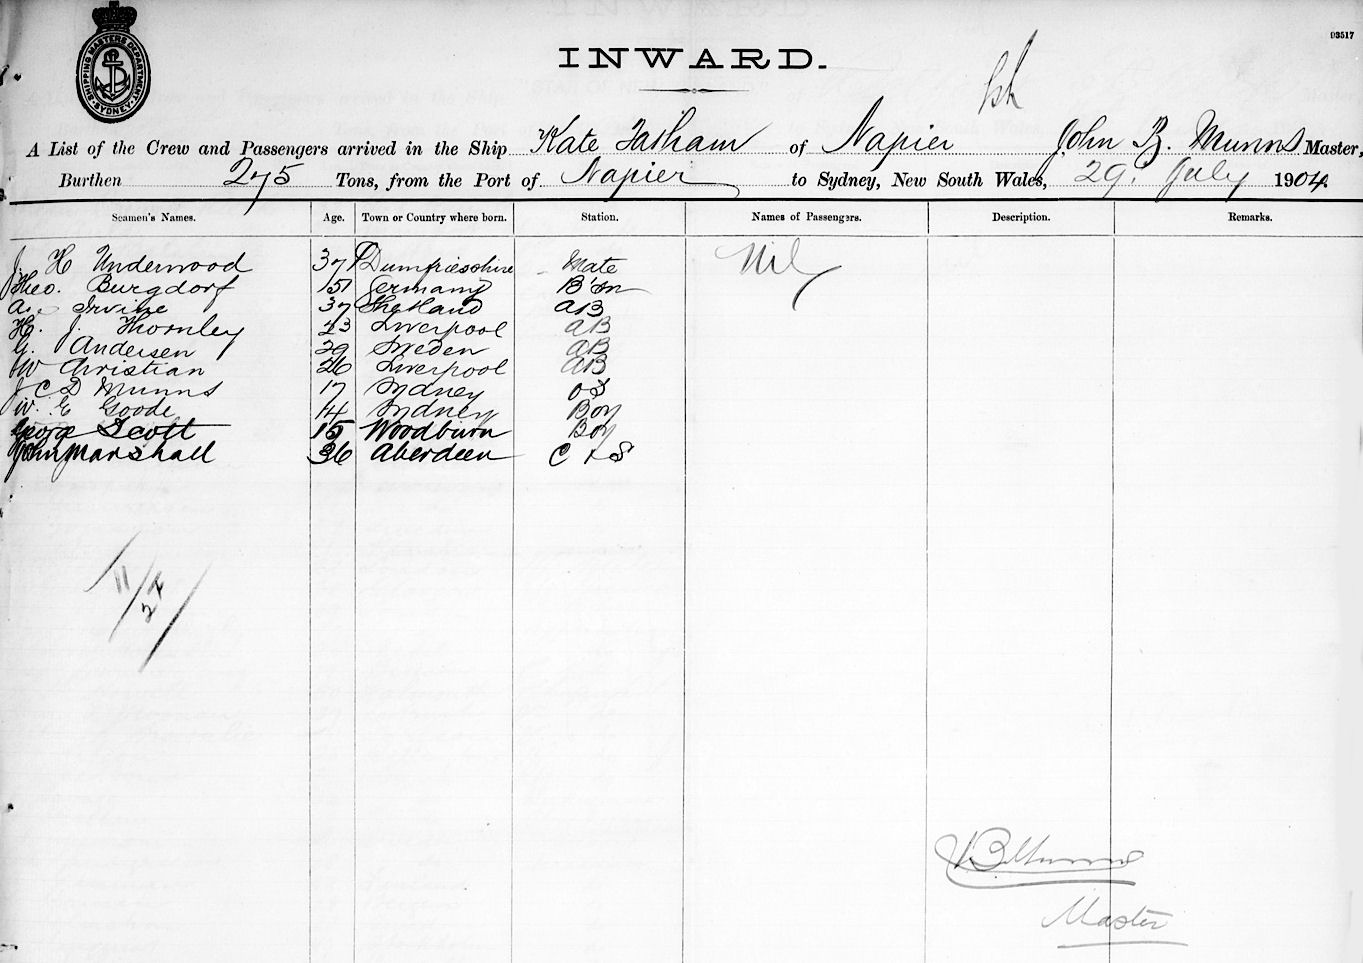 03517
SHIPPING MASTERS DEPARTMENT SYDNEY
INWARD.
A List of the Crew and Passengers arrived in the Ship Kate Tatham of Napier John B. Munns Master,
Burthen 275 Tons, from the Port of Napier to Sydney, New South Wales, 29. July 1904
Seamen's Names. Age. Town or Country where born. Station. Names of Passengers. Description. Remarks.
J. H Underwood 37 Dumfriesshire Mate Nil
Theo. Burgdorf 51 Germany B'sn
Irvine 37 Shetland AB
H. J. Thornley 23 Liverpool AB
G. Andersen 29 Sweden AB
W Christian 26 Liverpool AB
J C D Munns 17 Sydney OS
W. E Goode 14 Sydney Boy
George Scott 15 Woodburn Boy
John Marshall 36 Aberdeen C & S
11/22
J B Munns
Master